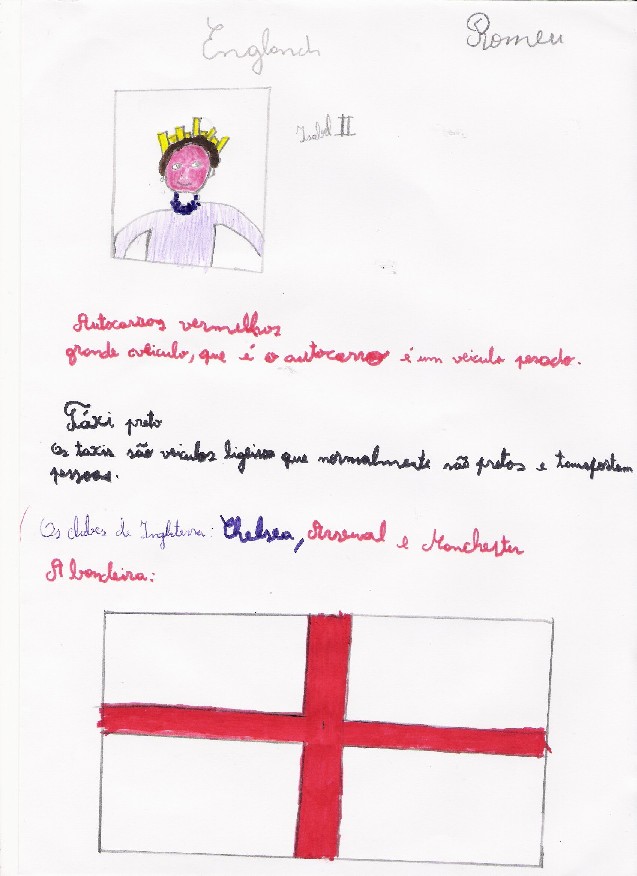 England
Romeu
Isabel II
Autocarros vermelhos
grande veiculo, que é o autocarro é um veiculo pesado.
Táxi preto
Os taxis são veiculos ligeiros que normalmente são pretos e transportam
pessoas.
Os clubes de Inglaterra: Chelsea, Arsenal e Manchester
A bandeira: